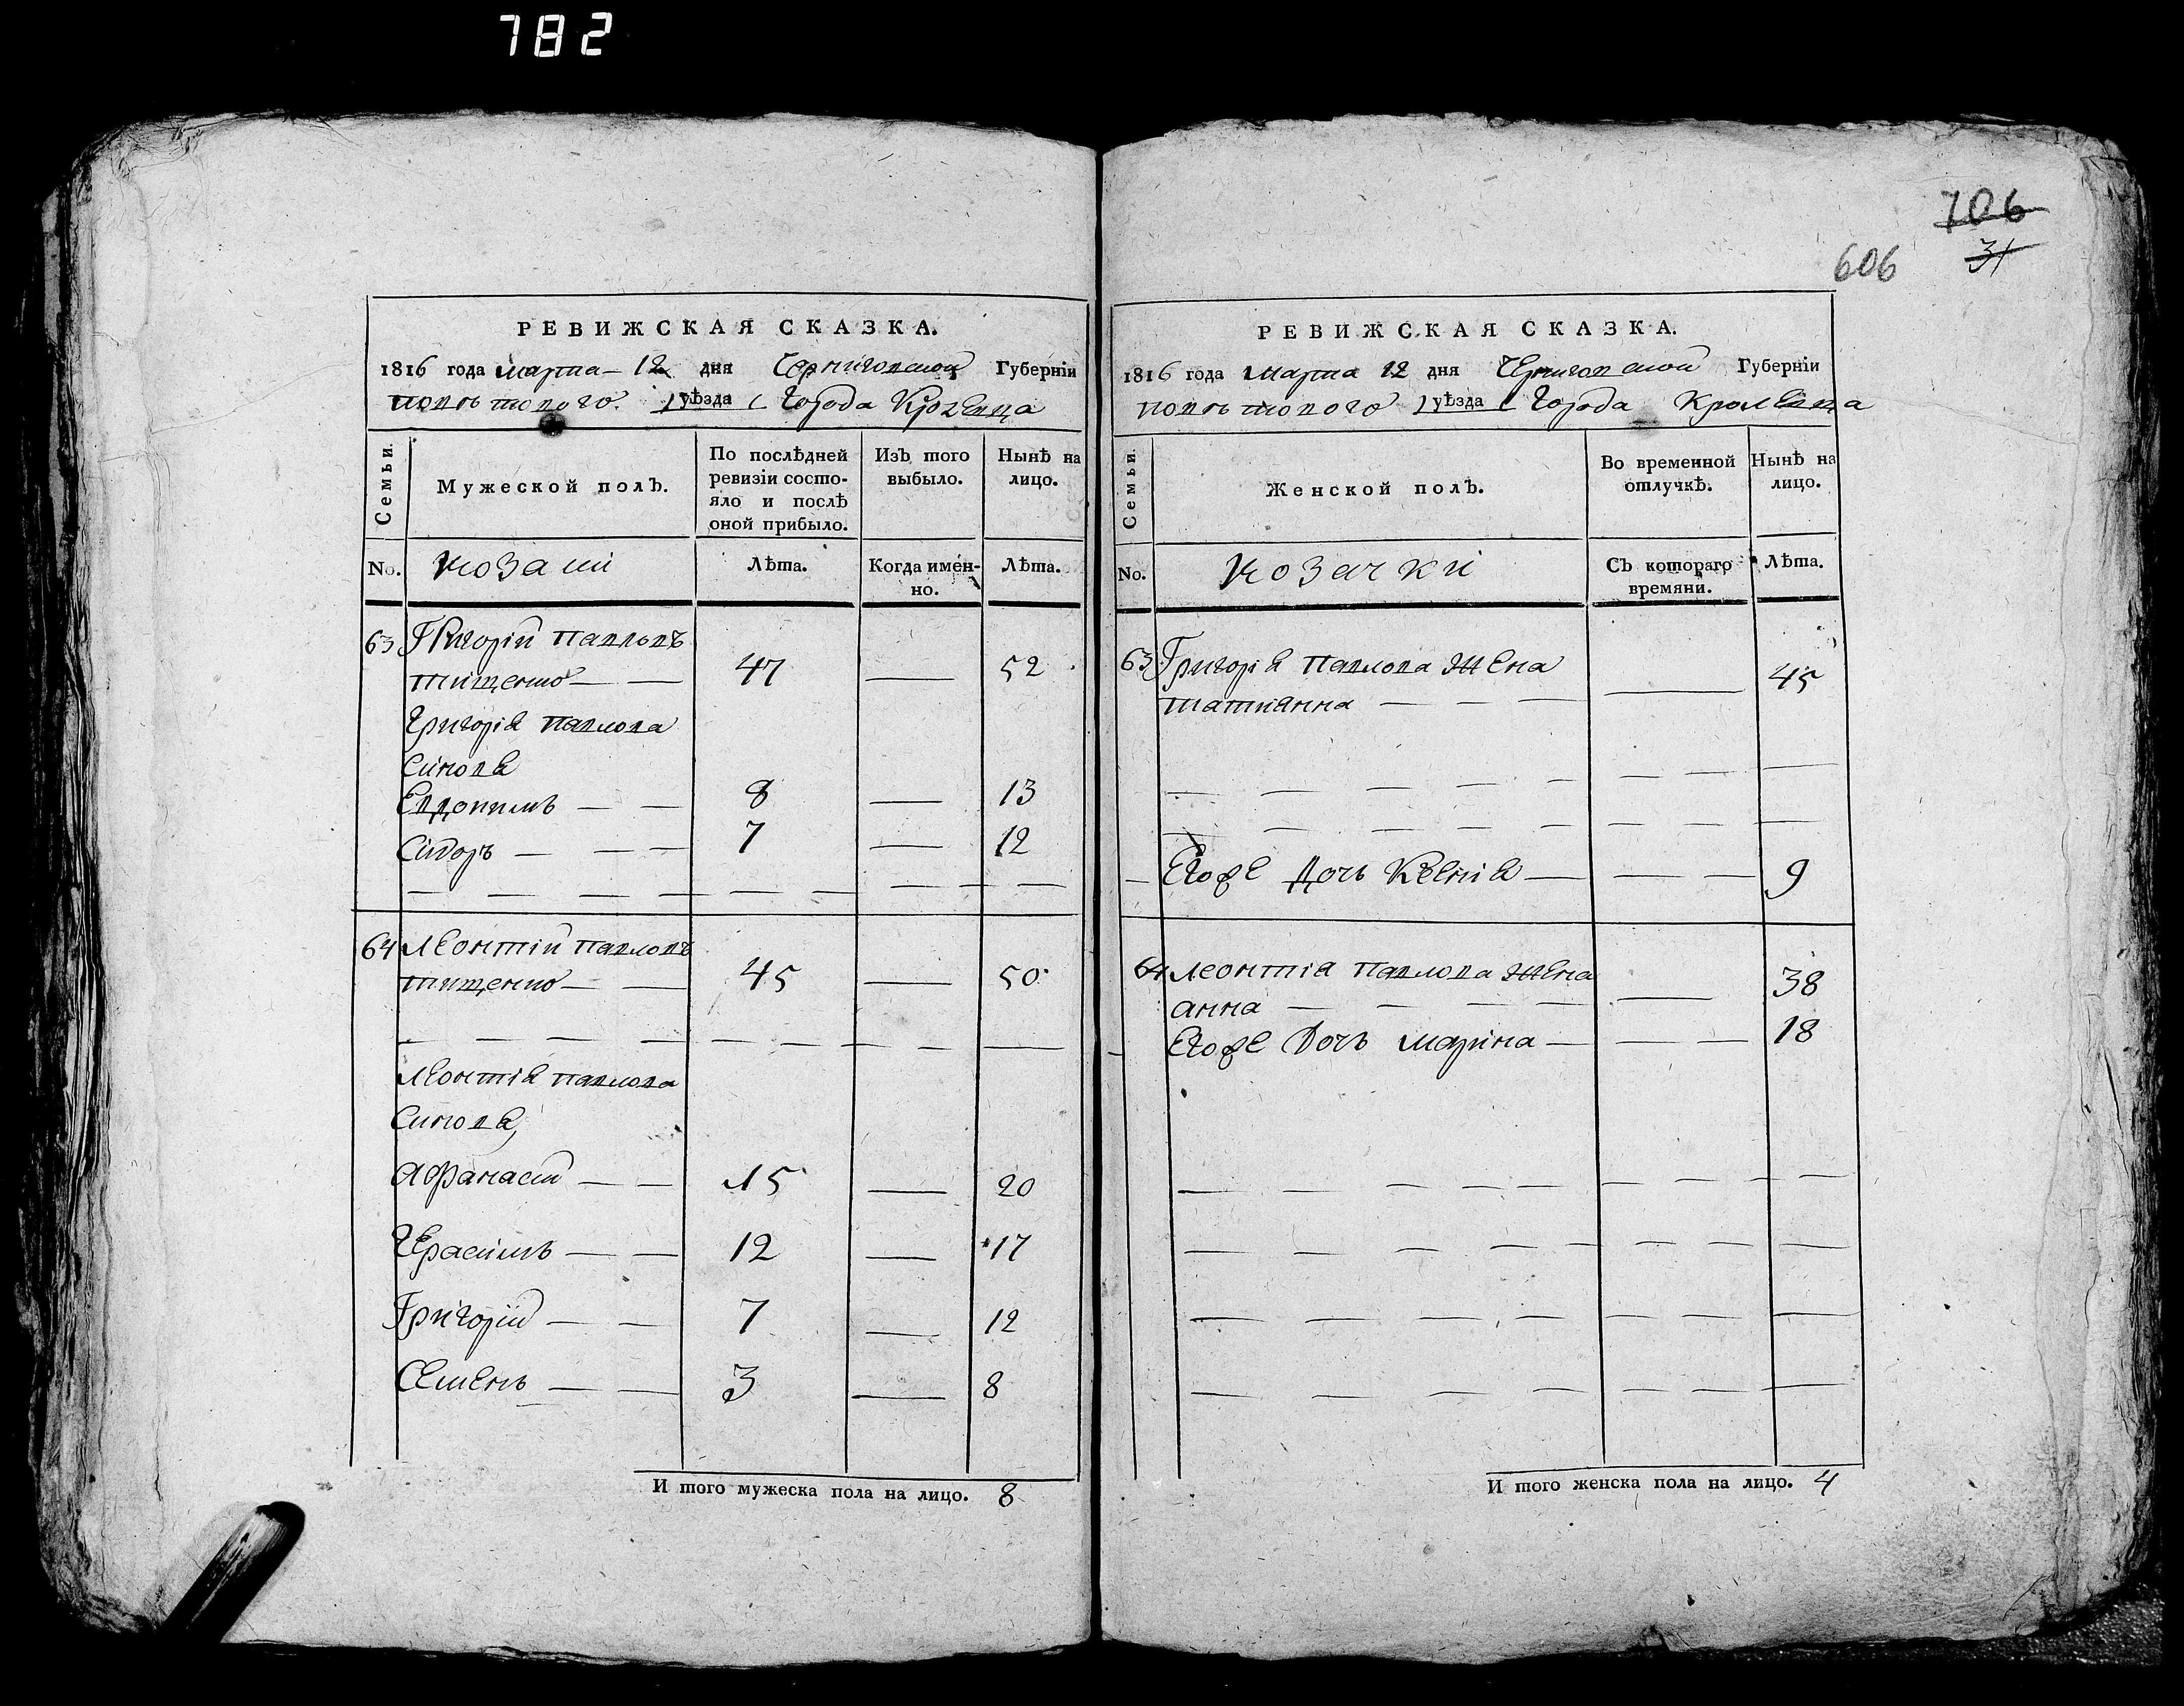 782
706
31
606
РЕВИЖСКАЯ СКАЗКА.
1816 года марта 12 дня Черниговской Губерніи
повѣтового уѣзда Города Кролевца
Семьи.
Мужеской полъ.
По послѣдней ревизіи состояло и послѣ оной прибыло.
Изъ того выбыло.
Нынѣ на лицо.
No. козаки Лѣта. Когда именно. Лѣта.
63 Григорій Павловъ
тищенко — — 47 — 52
Григорія павлова
Синовя
Евдокимъ — — 8 — 13
Сидоръ — — — 7 — 12
64 Леонтій павловъ
тищенко — — 45 — 50
Леонтія павлова
Синовя,
Афанасій — — 15 — 20
Герасимъ — — 12 — 17
Григорій — — 7 — 12
Семенъ — — 3 — 8
И того мужеска пола на лицо. 8
РЕВИЖСКАЯ СКАЗКА.
1816 года марта 12 дня Черниговской Губерніи
повѣтового уѣзда Города Кролевца
Семьи.
Женской полъ.
Во временной отлучкѣ.
Нынѣ на лицо.
No. козачки Съ котораго времяни. Лѣта.
63 Григорія павлова жена
татіянна — — — — 45
Егоже дочь Ксенія — — — 9
64 леонтія павлова жена
анна — — — — 38
Егоже дочь марина — — — 18
И того женска пола на лицо. 4